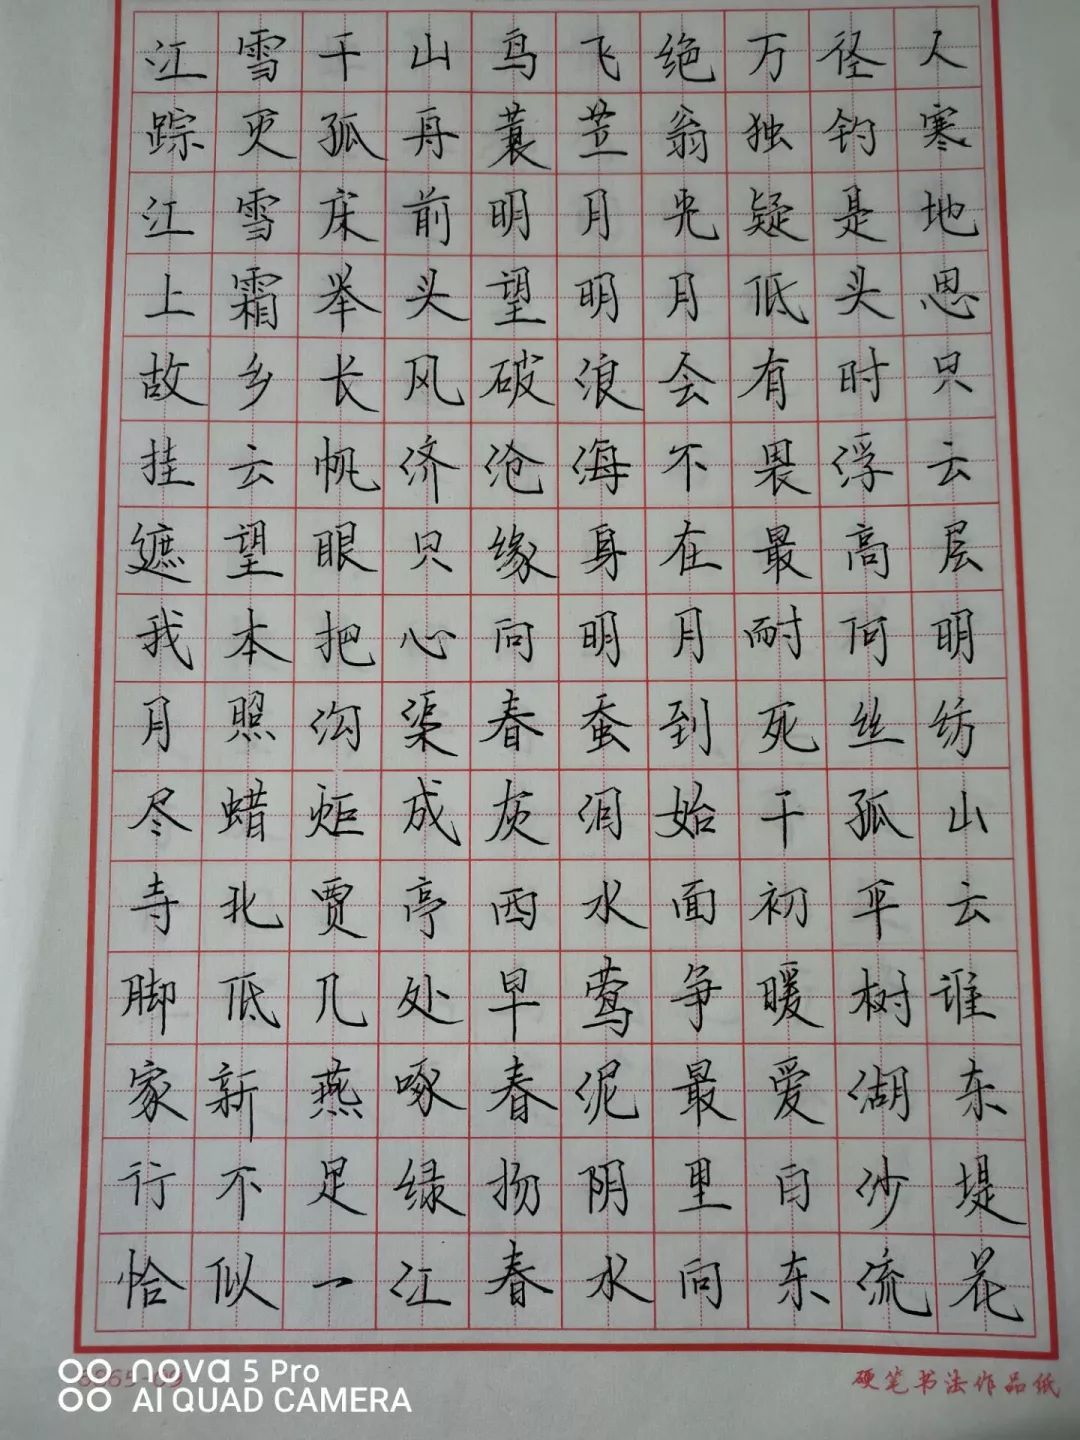 江雪千山鸟飞绝万径人
踪灭孤舟蓑笠翁独钓寒
江雪床前明月光疑是地
上霜举头望明月低头思
故乡长风破浪会有时只
挂云帆济沧海不畏浮云
遮望眼只缘身在最高层
我本把心向明月耐何明
月照沟渠春蚕到死丝纺
尽蜡炬成灰泪始干孤山
寺北贾亭西水面初平云
脚低几处早莺争暖树谁
家新燕啄春泥最爱湖东
行不足绿扬阴里白沙堤
恰似一江春水向东流花
6665-09
硬笔书法作品纸
nova 5 Pro
AI QUAD CAMERA